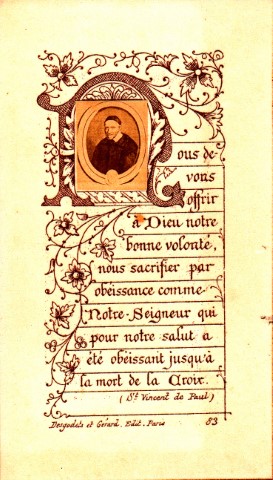 Nous de-
vons
offrir
à Dieu notre
bonne volonté,
nous sacrifier par
obéissance comme
Notre-Seigneur qui
pour notre salut a
été obéissant jusqu'à
la mort de la Croix.
(St Vincent de Paul)
Desgodets et Gérard, Edit. Paris 53